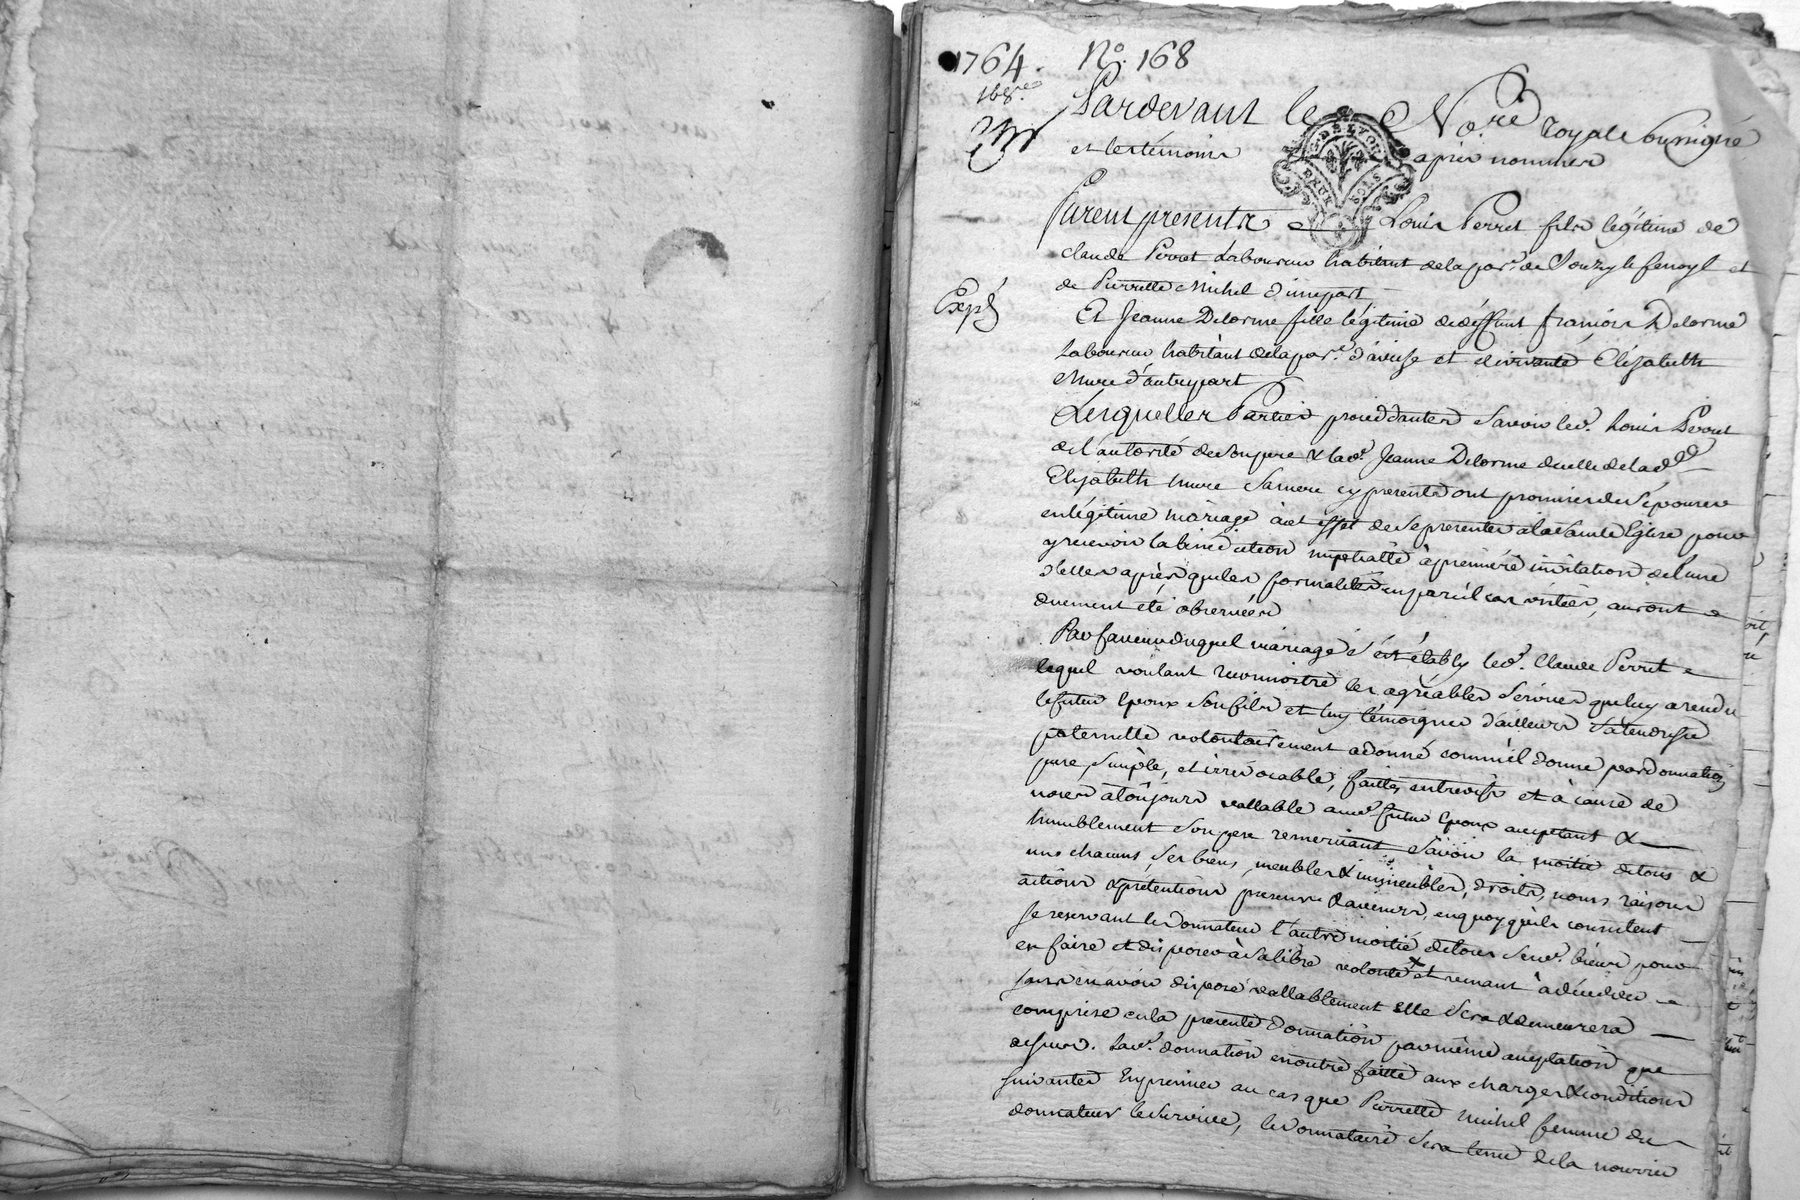 1764. No. 168
168.e
Pardevant le No.re royal soussigné
et les témoins après nommés
G. DE LYON
DEUX SOLS
furent presents Louis Perret fils légitime de
claude Perret Laboureur habitant de la par.e de Souzy le fenoyl et
de Pierrette Michel d'une part
Exp.é
Et Jeanne Delorme fille légitime de déffunt francois Delorme
Laboureur habitant de la par.e d'aveise et de vivante Elizabeth
Mure d'autre part
Lesquelles Parties procéddantes Savoir led.t Louis Perret
de l'autorité de Son pere & lad.e Jeanne Delorme de celle de lad.e
Elizabeth mure Sa mere cy presents ont promis de S'épouser
en légitime mariage à cet effet de Se presenter à la Sainte Eglise pour
y recevoir la bénédiction nuptialle à première invitation de l'une
d'elles après que les formalités en pareil cas usitées, auront
duement été observées
Par faveur duquel mariage s'est étably led.t Claude Perret
lequel voulant reconnoitre les agréables Services que luy a rendu
le futur Epoux Son fils et luy témoigner d'ailleurs Sa tendresse
paternelle volontairement a donné comm'il donne par donnation
pure, Simple, et irrévocable, faitte entrevifs et à cause de
noces a toujours vallable aud.t futur Epoux acceptant &
humblement Son pere remerciant Savoir la moitié de tous &
uns chacuns, Ses biens, meubles & immeubles, droits, noms, raisons
actions & prétentions presents & avenirs, en quoy qu'ils consistent
Se reservant le Donnateur l'autre moitié de tous Sesd.ts biens pour
en faire et disposer à Sa libre volonté et venant à décéder
sans en avoir disposé vallablement Elle Sera & demeurera
comprise en la presente Donnation par même acceptation que
dessus. Lad.e donnation en outre faitte aux charges & conditions
Suivantes au cas que Pierrette Michel femme du
donnateur le Survive, le Donnataire Sera tenu de la nourrir